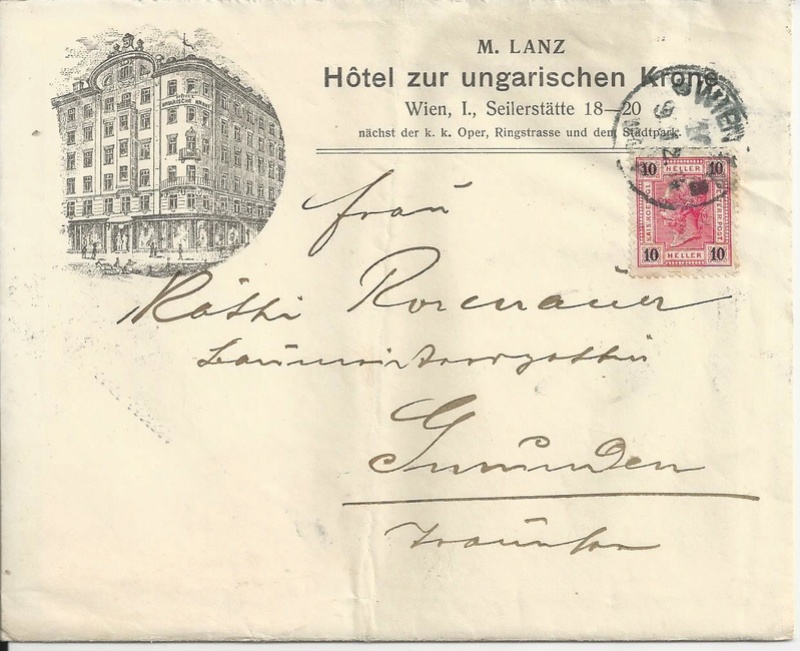 M. LANZ
Hôtel zur ungarischen Krone
Wien, I., Seilerstätte 18—20
nächst der k. k. Oper, Ringstrasse und dem Stadtpark.
HÔTEL
UNGARISCHE KRONE
WIEN
10 HELLER 10
KAIS. KÖNIGL.
ÖSTERR. POST
10 HELLER 10
Frau
Käthi Rosenauer
Baumeistersgattin
Gmunden
Traunsee